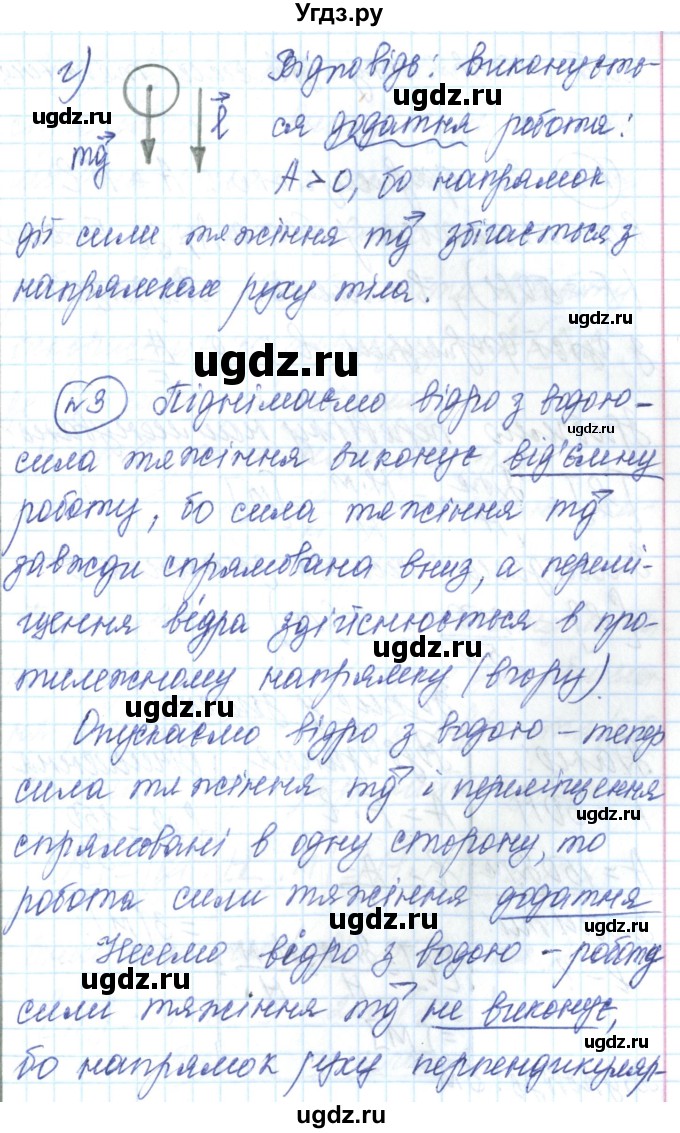 Угдз.ру
г)
mg
l
Відповідь: виконуєть-
ся додатня робота:
A > 0, бо напрямок
дії сили тяжіння mg збігається з
напрямком руху тіла.
№3 Піднімаємо відро з водою-
сила тяжіння виконує від'ємну
роботу, бо сила тяжіння mg
завжди спрямована вниз, а перемі-
щення відра здійснюється в про-
тилежному напрямку (вгору).
Опускаємо відро з водою - тепер
сила тяжіння mg і переміщення
спрямовані в одну сторону, то
робота сили тяжіння додатня
Несемо відро з водою - роботу
сили тяжіння mg не виконує,
бо напрямок руху перпендикуляр-
ugdz.ru
ugdz.ru
ugdz.ru
ugdz.ru
ugdz.ru
ugdz.ru
ugdz.ru
ugdz.ru
ugdz.ru
ugdz.ru
ugdz.ru
ugdz.ru
ugdz.ru
ugdz.ru